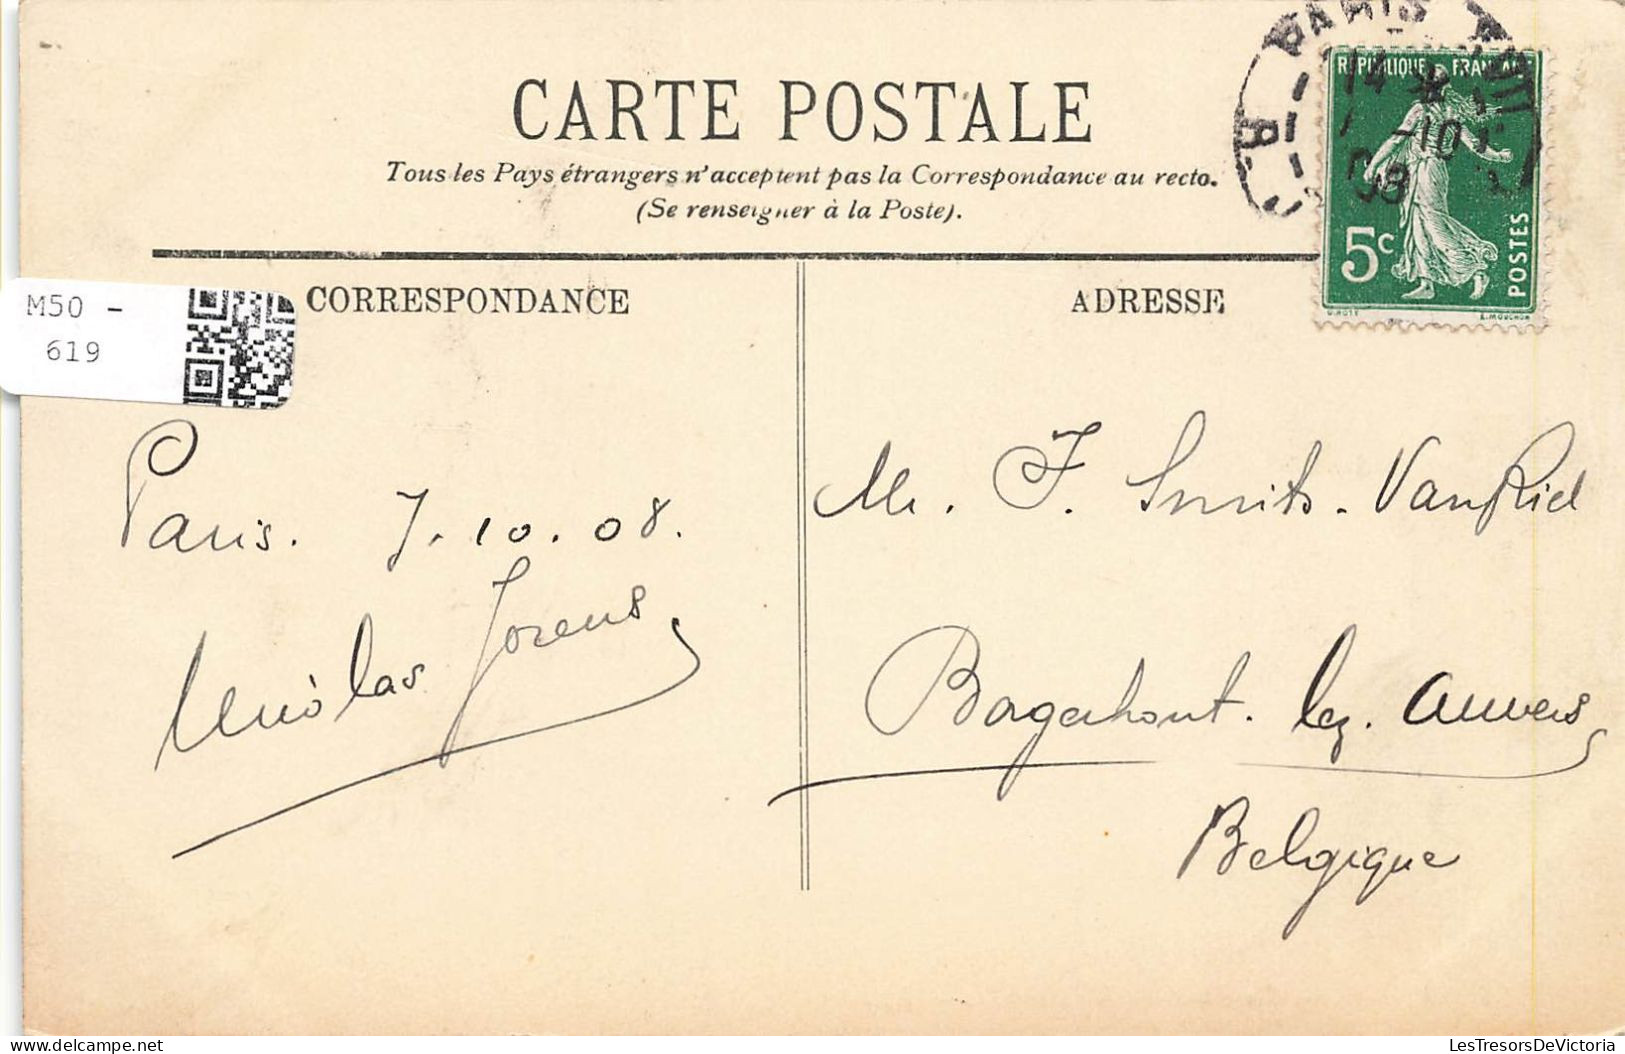 CARTE POSTALE
Tous les Pays étrangers n'acceptent pas la Correspondance au recto.
(Se renseigner à la Poste).
CORRESPONDANCE
ADRESSE
M50 -
619
PARIS
7 -10
08
REPUBLIQUE FRANCAISE
5c
POSTES
O.ROTY
E.MOUCHON
Paris. 7.10.08.
Nicolas Jorens
Mr. F. Smits-VanRiel
Borgerhout. lez. Anvers
Belgique
LesTresorsDeVictoria